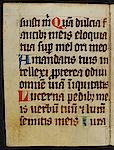 iusti m Quā dulcia f
aucib meis eloquia
tua sup mel ori meo
A mandatis tuis in
tellexi propterea odiui
omnē uiā iniquitatis
Lucerna pedib me
is verbum tuū et lum
semitis meis